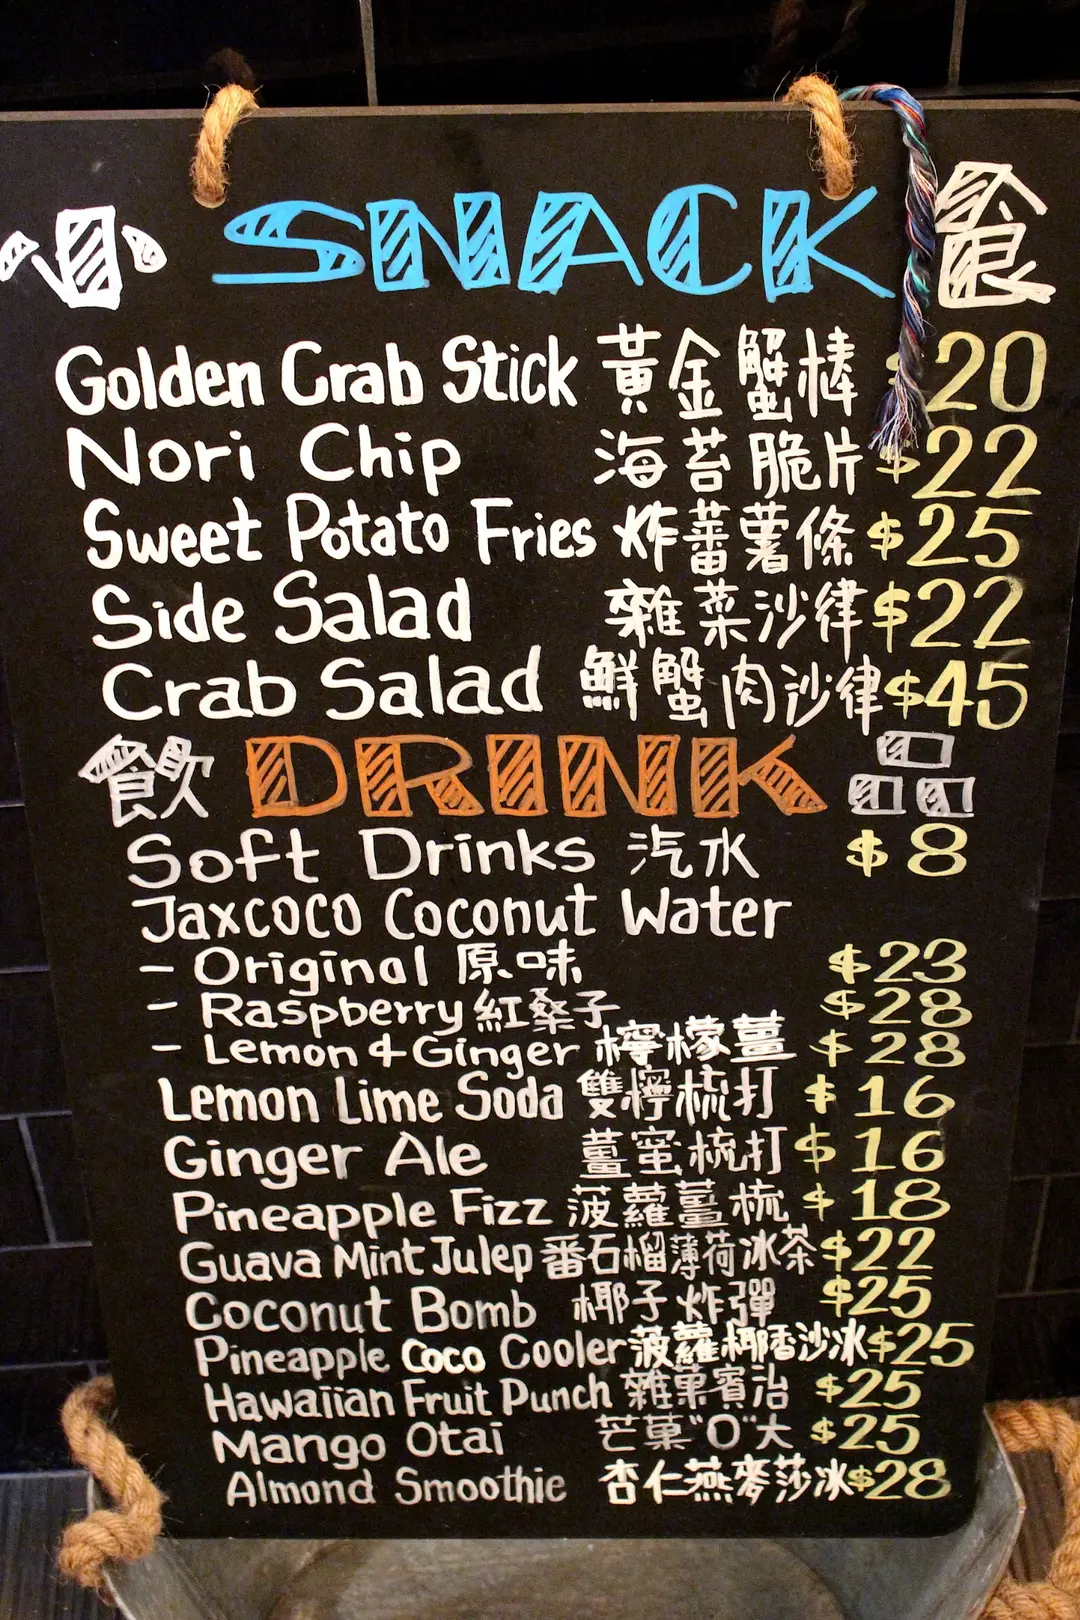 小 SNACK 食
Golden Crab Stick 黃金蟹棒 $20
Nori Chip 海苔脆片 $22
Sweet Potato Fries 炸蕃薯條 $25
Side Salad 雜菜沙律 $22
Crab Salad 鮮蟹肉沙律 $45
飲 DRINK 品
Soft Drinks 汽水 $8
Jaxcoco Coconut Water
- Original 原味 $23
- Raspberry 紅桑子 $28
- Lemon & Ginger 檸檬薑 $28
Lemon Lime Soda 雙檸梳打 $16
Ginger Ale 薑蜜梳打 $16
Pineapple Fizz 菠蘿薑梳 $18
Guava Mint Julep 番石榴薄荷冰茶 $22
Coconut Bomb 椰子炸彈 $25
Pineapple Coco Cooler 菠蘿椰香沙冰 $25
Hawaiian Fruit Punch 雜菓賓治 $25
Mango Otai 芒菓"O"大 $25
Almond Smoothie 杏仁燕麥莎冰 $28